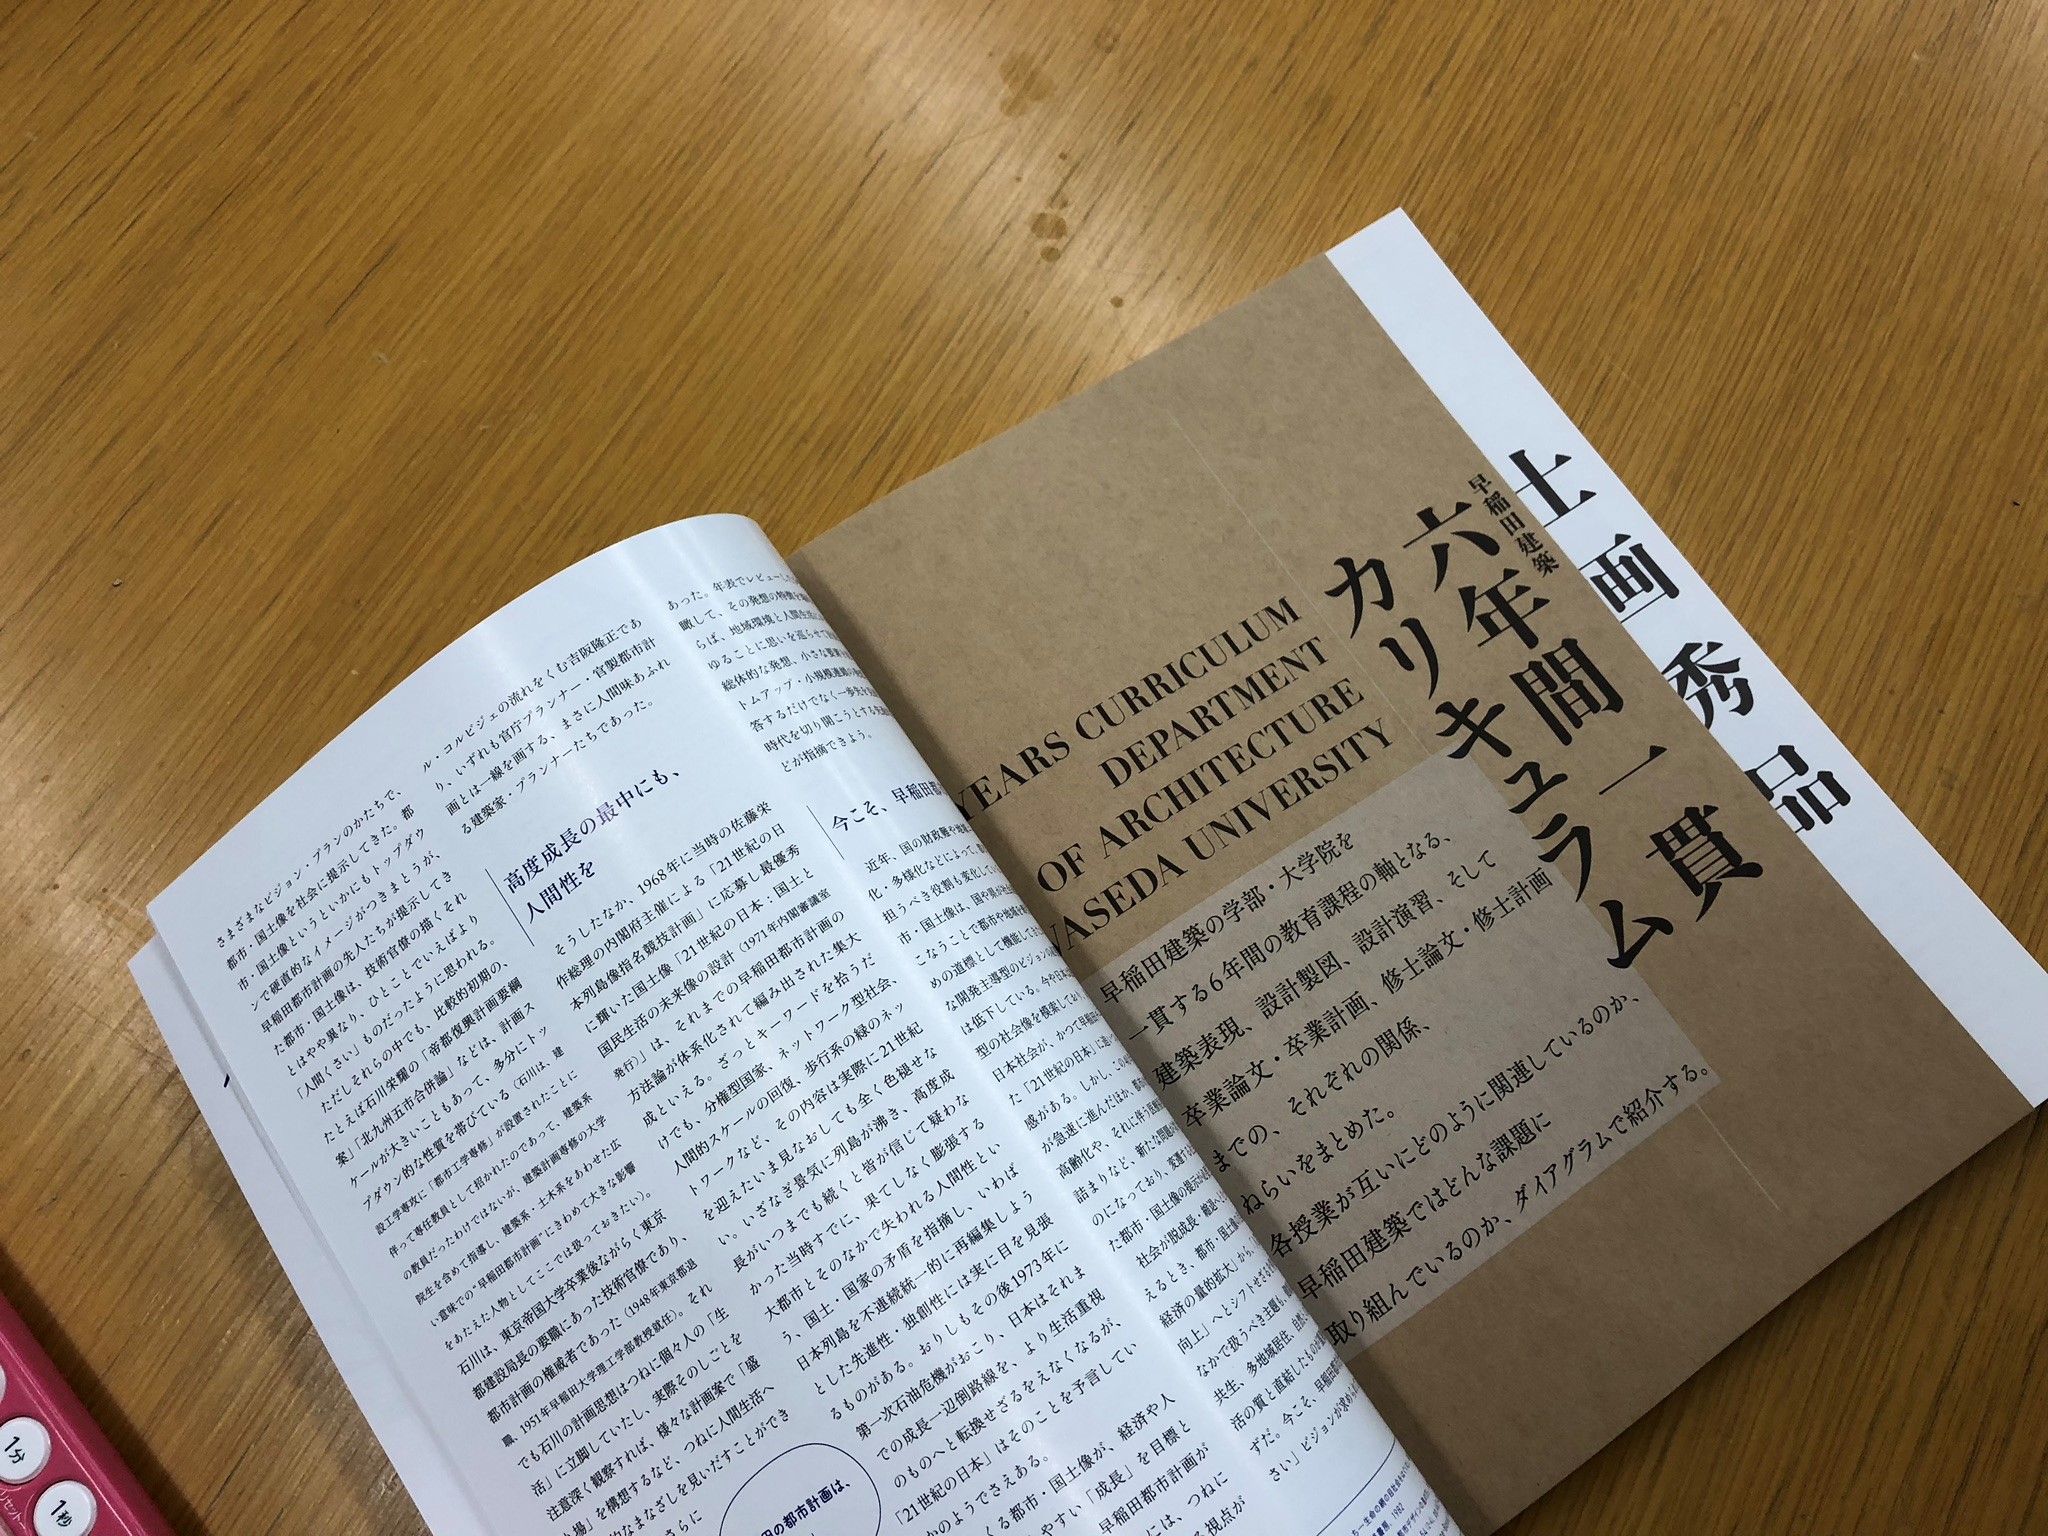 さまざまなビジョン・プランのかたちで、
都市・国土像を社会に提示してきた。都
市・国土像というといかにもトップダウ
ンで硬直的なイメージがつきまとうが、
早稲田都市計画の先人たちが提示してき
た都市・国土像は、技術官僚の描くそれ
とはやや異なり、ひとことでいえばより
「人間くさい」ものだったように思われる。
ただしそれらの中でも、比較的初期の、
たとえば石川栄耀の「帝都復興計画要綱
案」「北九州五市合併論」などは、計画ス
ケールが大きいこともあって、多分にトッ
プダウン的な性質を帯びている（石川は、建
設工学専攻に「都市工学専修」が設置されたことに
伴って専任教員として招かれたのであって、建築系
の教員だったわけではないが、建築計画専修の大学
院生を含めて指導し、建築系・土木系をあわせた広
い意味での"早稲田都市計画"にきわめて大きな影響
をあたえた人物としてここでは扱っておきたい）。
石川は、東京帝国大学卒業後ながらく東京
都建設局長の要職にあった技術官僚であり、
都市計画の権威者であった（1948年東京都退
職、1951年早稲田大学理工学部教授就任）。それ
でも石川の計画思想はつねに個々人の「生
活」に立脚していたし、実際そのしごとを
注意深く観察すれば、様々な計画案で「盛
り場」を構想するなど、つねに人間生活へ
的なまなざしを見いだすことができ
さらに
ル・コルビジェの流れをくむ吉阪隆正であ
り、いずれも官庁プランナー・官製都市計
画とは一線を画する、まさに人間味あふれ
る建築家・プランナーたちであった。
高度成長の最中にも、
人間性を
そうしたなか、1968年に当時の佐藤栄
作総理の内閣府主催による「21世紀の日
本列島像指名競技計画」に応募し最優秀
に輝いた国土像「21世紀の日本：国土と
国民生活の未来像の設計（1971年内閣審議室
発行）」は、それまでの早稲田都市計画の
方法論が体系化されて編み出された集大
成といえる。ざっとキーワードを拾うだ
けでも、分権型国家、ネットワーク型社会、
人間的スケールの回復、歩行系の緑のネッ
トワークなど、その内容は実際に21世紀
を迎えたいま見なおしても全く色褪せな
い。いざなぎ景気に列島が沸き、高度成
長がいつまでも続くと皆が信じて疑わな
かった当時すでに、果てしなく膨張する
大都市とそのなかで失われる人間性とい
う、国土・国家の矛盾を指摘し、いわば
日本列島を不連続統一的に再編集しよう
とした先進性・独創性には実に目を見張
るものがある。おりしもその後1973年に
第一次石油危機がおこり、日本はそれま
での成長一辺倒路線を、より生活重視
のものへと転換せざるをえなくなるが、
「21世紀の日本」はそのことを予言してい
かのようでさえある。
くる都市・国土像が、経済や人
やすい「成長」を目標と
早稲田都市計画が
には、つねに
る視点が
田の都市計画は、
あった。年表でレビューした
瞰して、その発想の特徴を
らば、地域環境と人間生活
ゆることに思いを巡らせて
総体的な発想、小さな
トムアップ・小規模連鎖の
答するだけでなく一歩先を
時代を切り開こうとする先
どが指摘できよう。
今こそ、早稲田都
近年、国の財政難や地域
化・多様化などによって、
担うべき役割も変化してい
市・国土像は、国や県が
こなうことで都市や地域を
めの道標として機能してき
な開発主導型のビジョンの
は低下している。今や日本
型の社会像を模索しており
日本社会が、かつて早稲田
た「21世紀の日本」に近づ
感がある。しかし、この
が急速に進んだほか、都市
高齢化や、それに伴う医療
詰まりなど、新たな問題が
のになっており、変遷する
た都市・国土像の提示が
社会が脱成長・縮退へと
えるとき、都市・国土像の
経済の量的拡大」から、
向上」へとシフトせざる
なかで扱うべき主題も、
共生、多地域居住、自然
活の質と直結したものが
ずだ。今こそ、早稲田都
さい」ビジョンが求め
YEARS CURRICULUM
DEPARTMENT
OF ARCHITECTURE
WASEDA UNIVERSITY
早稲田建築
六年間一貫
カリキュラム
早稲田建築の学部・大学院を
一貫する6年間の教育課程の軸となる、
建築表現、設計製図、設計演習、そして
卒業論文・卒業計画、修士論文・修士計画
までの、それぞれの関係、
ねらいをまとめた。
各授業が互いにどのように関連しているのか、
早稲田建築ではどんな課題に
取り組んでいるのか、ダイアグラムで紹介する。
士画秀品
1分
1秒
リセット